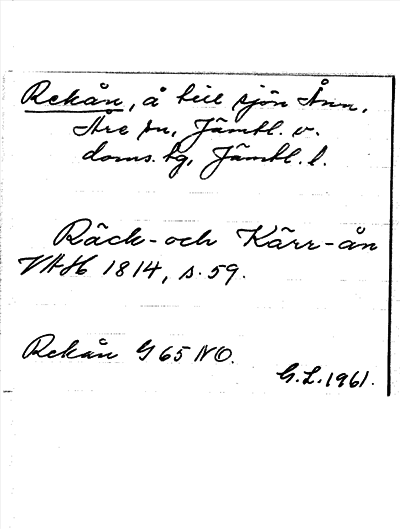 Rekån, å till sjön Ånn,
Åre sn, Jämtl. v.
doms. tg, Jämtl. l.
Räck- och Kärr-ån
VAH 1814, s. 59.
Rekån G 65 NO.
G.L. 1961.